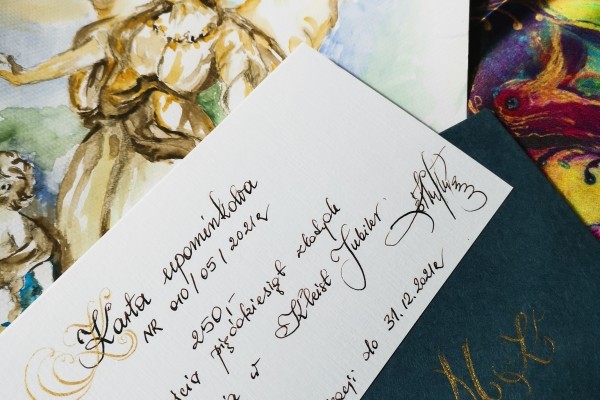 Karta upominkowa
NR 010/05/2021r
250,-
pięćdziesiąt złotych
w Kleist Jubiler
do 31.12.2021r
M & Ł